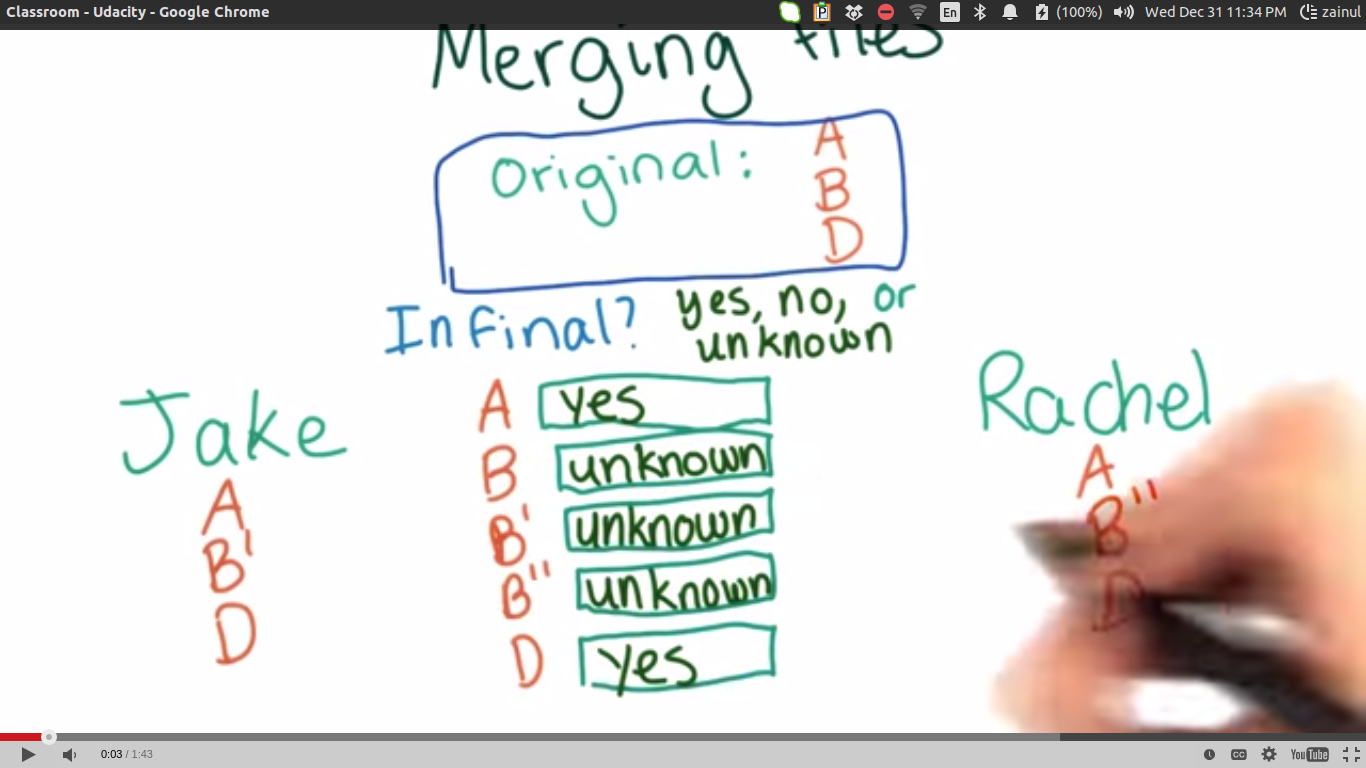 Classroom - Udacity - Google Chrome
En
(100%)
Wed Dec 31 11:34 PM
zainul
Merging files
Original:
A
B
D
In final? yes, no, or
unknown
Jake
A
B'
D
A yes
B unknown
B' unknown
B'' unknown
D yes
Rachel
A
B''
D
0:03 / 1:43
CC
YouTube